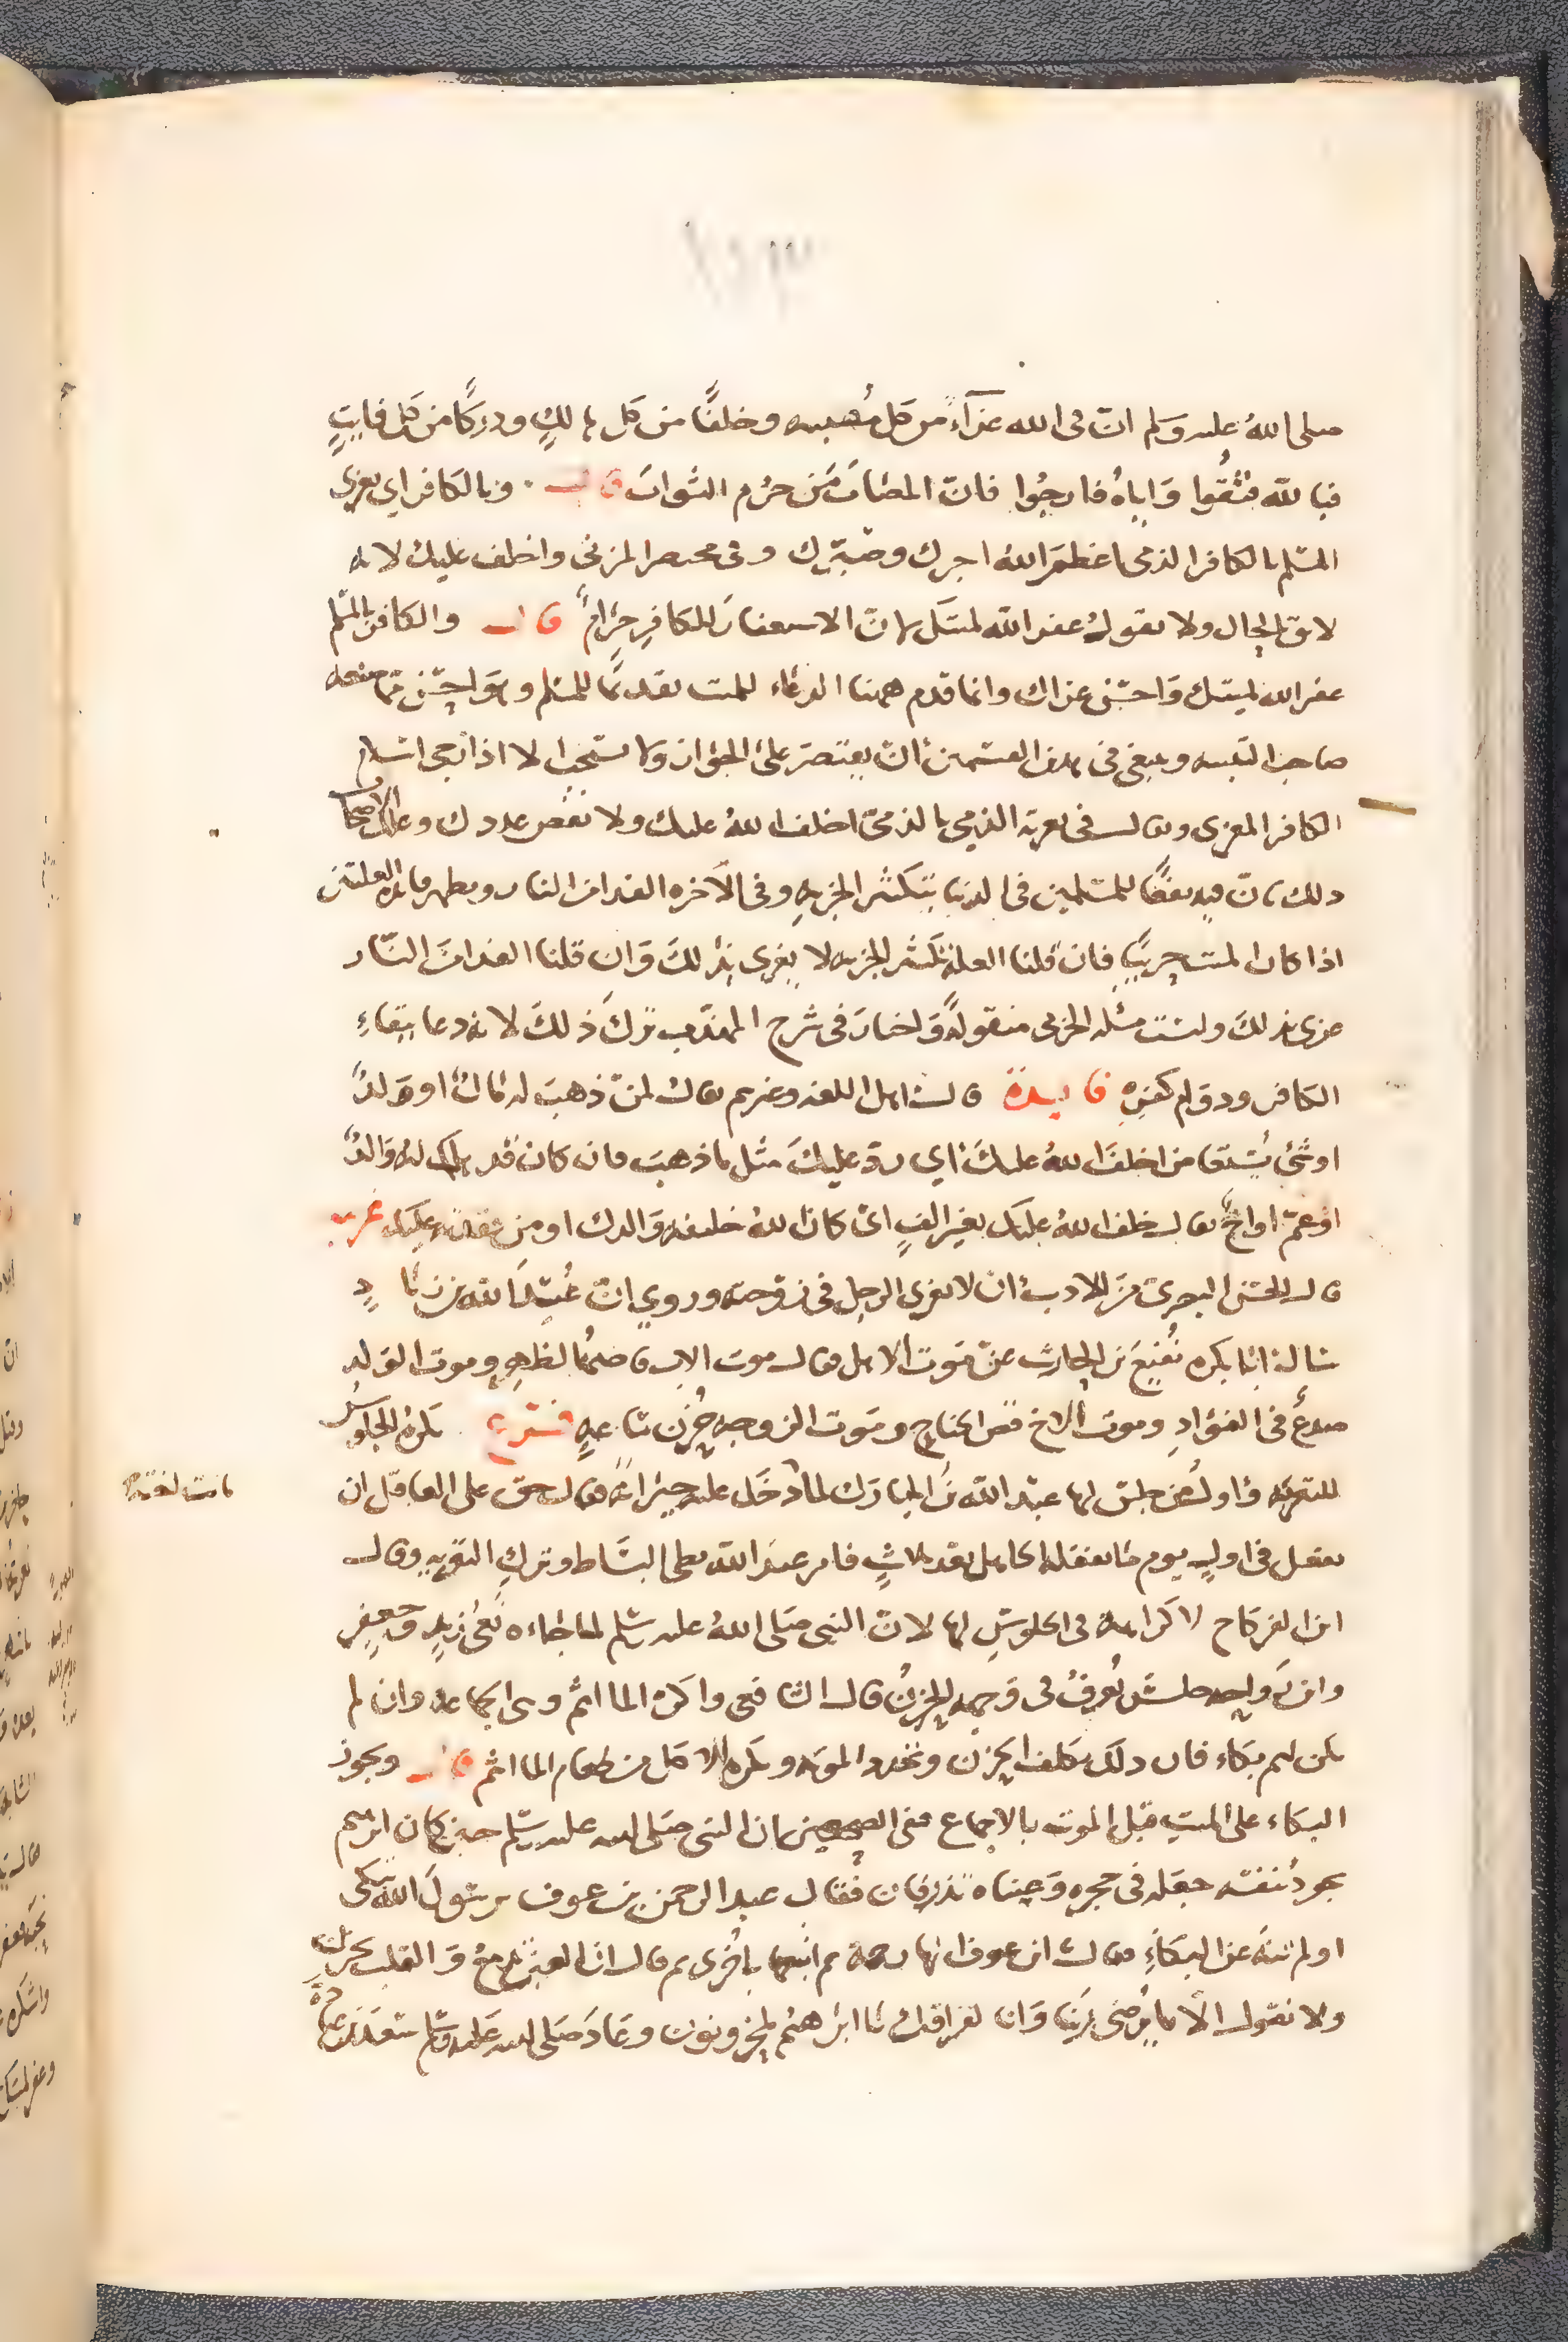 صلى الله عليه وسلم ان في الله عزآء من كل مصيبه وخلفًا من كل هالكٍ ودركًا من كل فايتٍ
فبالله فثقوا واياه فارجوا فان المصاب من حرم الثواب قال . وبالكافر اي يعزي
المسلم بالكافر الذمي اعظم الله اجرك وصبرك وفي مختصر المزني واخلف عليك لانه
لايق بالحال ولا يقول غفر الله لميتك لان الاستغفار للكافر حرام قال والكافر بالمسلم
غفر الله لميتك واحسن عزاك وانما قدم ههنا الدعاء للميت تقديمًا للمسلم وهو احسن مما صنعه
صاحب التنبيه وينبغي في هذين القسمين ان يقتصر على الجواز ولا يستحب الا اذا رجى اسلام
الكافر المعزى ويقال في تعزية الذمي بالذمي اخلف الله عليك ولا نقص عددك وعلل الاصحاب
ذلك بان فيه نفعًا للمسلمين في الدنيا بتكثير الجزيه وفي الآخره الفدا من النار ويظهر فائده العلتين
اذا كان الميت حربيًا فان قلنا العلة تكثير الجزيه لا يعزى بذلك وان قلنا الفدا من النار
عزى بذلك وليست مسئله الحربي منقولة واختار في شرح المهذب ترك ذلك لانه دعا ببقاء
الكافر ودوام كفره فايدة قال اهل اللغه وغيرهم يقال لمن ذهب له مال او ولد
او شئ يستقا من اخلف الله عليك اي رد عليك مثل ما ذهب فان كان قد هلك له والد
او عم او اخ يقال خلف الله عليك بغير الف اي كان الله خليفه والدك او من فقدته عليك غريبه
قال الحسن البصري من الادب ان لا يعزى الرجل في زوجته وروي ان عبيد الله بن زياد
سال ابا بكره نفيع بن الحارث عن موت الاهل فقال موت الاب قاصمة الظهر وموت الولد
صدع في الفؤاد وموت الاخ قص الجناح وموت الزوجه حزن ساعه فرع يكره الجلوس
للتعزيه واول من جلس لها عبد الله بن المبارك لما دخل عليه جيرانه فقال حق على العاقل ان
يفعل في اول يوم ما يفعله الجاهل بعد ثلاث فامر عبد الله بطي البساط وترك التعزيه وقال
ابن الفركاح لا كراهة في الجلوس لها لان النبي صلى الله عليه وسلم لما جاءه نعي زيد وجعفر
وابن رواحه جلس يُعرف في وجهه الحزن قال الشافعي واكره المأتم وهي الجماعه وان لم
يكن لهم بكاء فان ذلك يكلف الحزن ويجدد المؤنه ويكره الاكل من طعام المأتم قال ويجوز
البكاء على الميت قبل الموت بالاجماع ففي الصحيحين ان النبي صلى الله عليه وسلم حين كان ابراهيم
يجود بنفسه جعله في حجره وعيناه تذرفان فقال عبد الرحمن بن عوف يرسول الله تبكى
اولم تنه عن البكاء فقال ابن عوف انها رحمة ثم اتبعها باخرى ثم قال ان العين تدمع والقلب يحزن
ولا نقول الا ما يرضى ربنا وانا لفراقك يا ابراهيم لمحزونون وعاد صلى الله عليه وسلم سعد بن عبادة